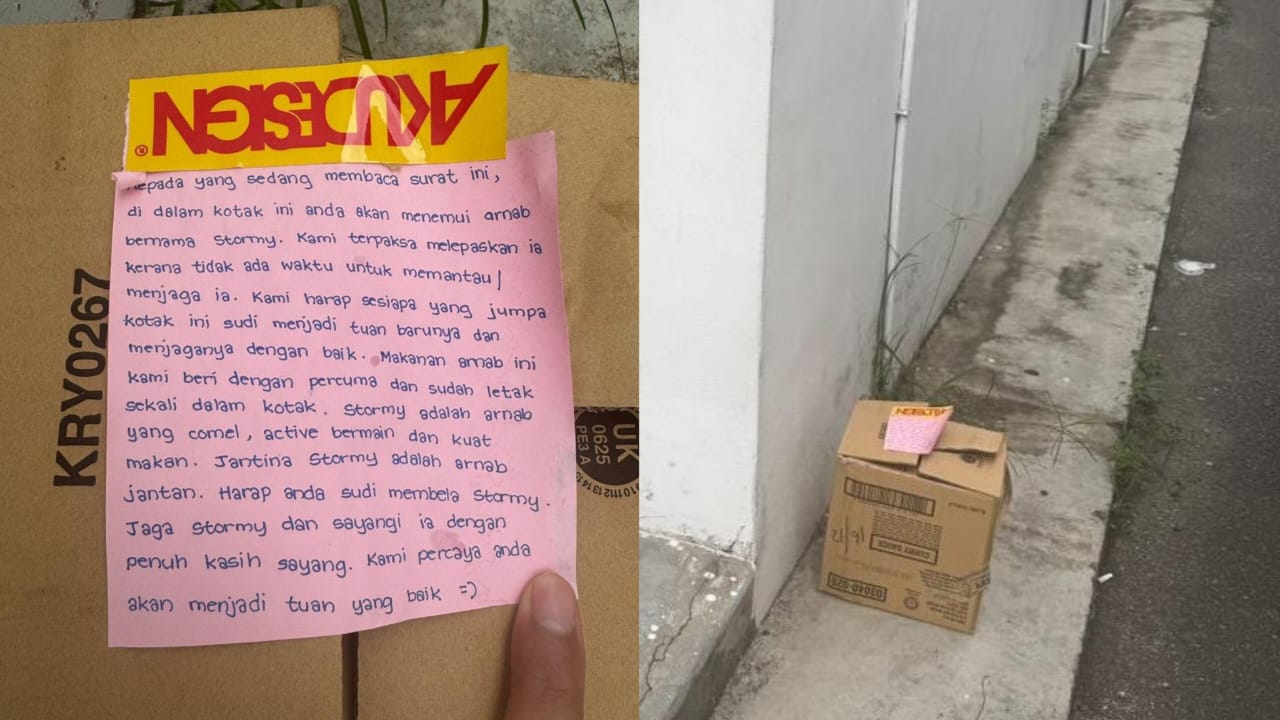 AKUDESIGN®
Kepada yang sedang membaca surat ini,
di dalam kotak ini anda akan menemui arnab
bernama Stormy. Kami terpaksa melepaskan ia
kerana tidak ada waktu untuk memantau/
menjaga ia. Kami harap sesiapa yang jumpa
kotak ini sudi menjadi tuan barunya dan
menjaganya dengan baik. Makanan arnab ini
kami beri dengan percuma dan sudah letak
sekali dalam kotak. Stormy adalah arnab
yang comel, active bermain dan kuat
makan. Jantina Stormy adalah arnab
jantan. Harap anda sudi membela Stormy.
Jaga Stormy dan sayangi ia dengan
penuh kasih sayang. Kami percaya anda
akan menjadi tuan yang baik =)
KRY0267
UK
0625
PE3 A
9 10 11 12 13 14 15
AKUDESIGN
CURRY SAUCE
16/12
03040-026